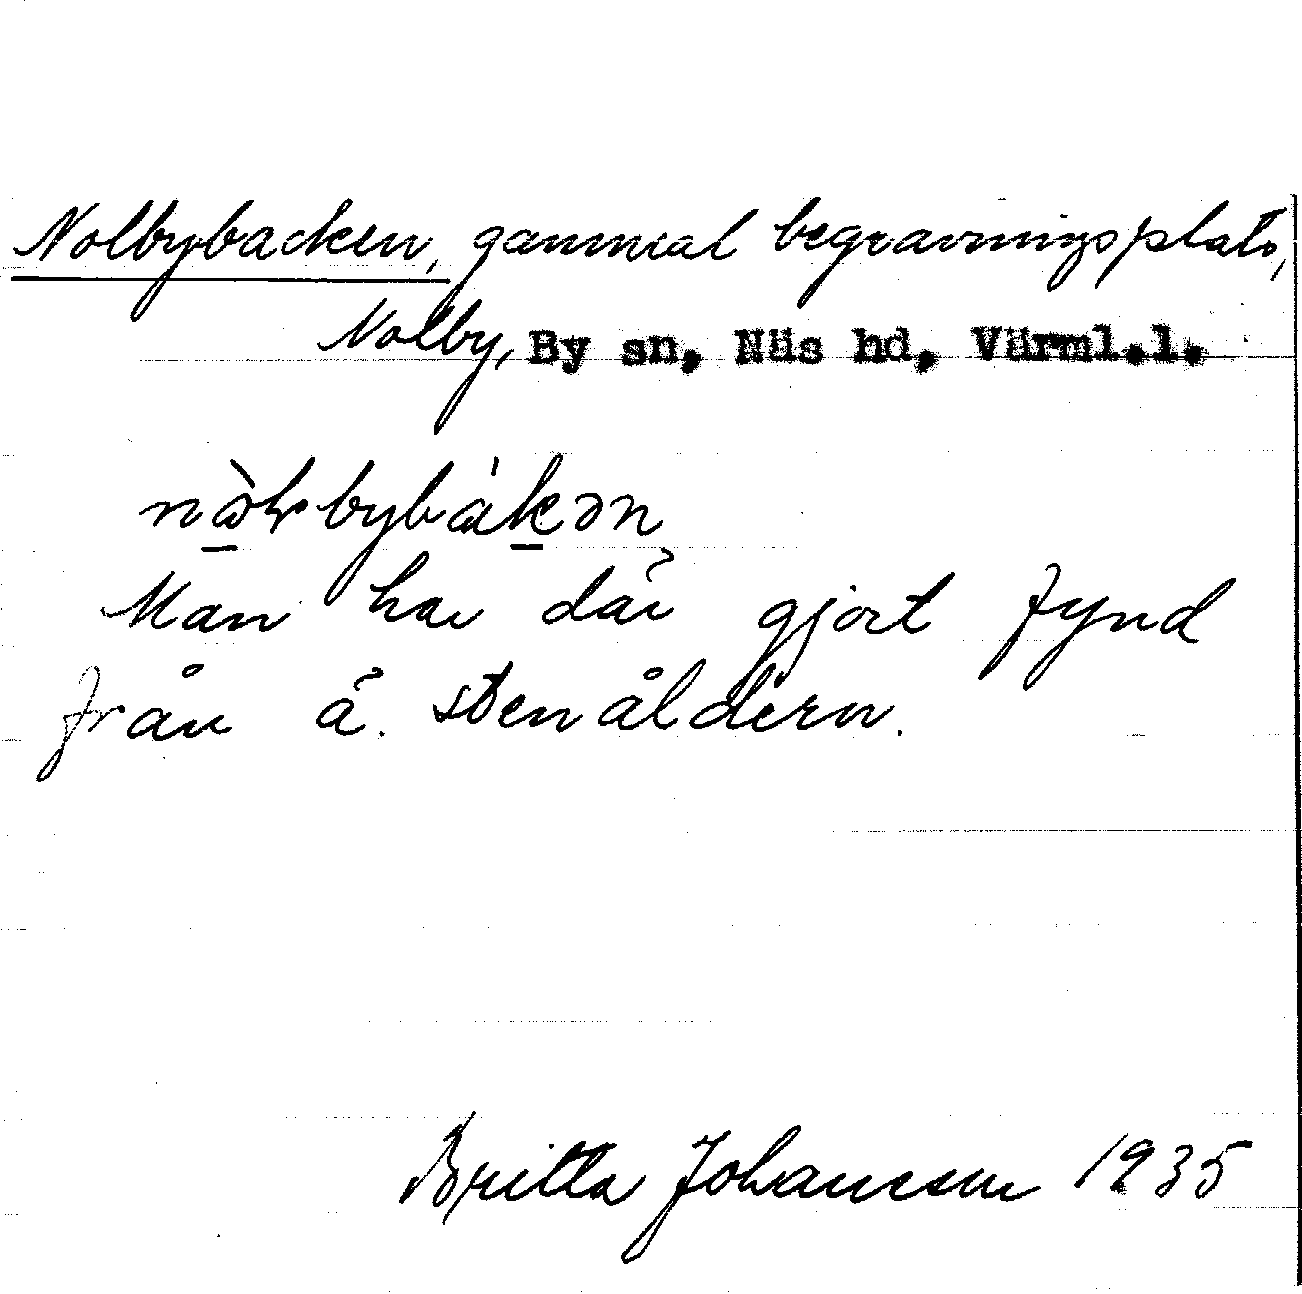 Nolbybacken, gammal begravningsplats,
Nolby, By sn, Näs hd, Värml.l.
Man har där gjort fynd
från ä. stenåldern.
Britta Johansson 1935